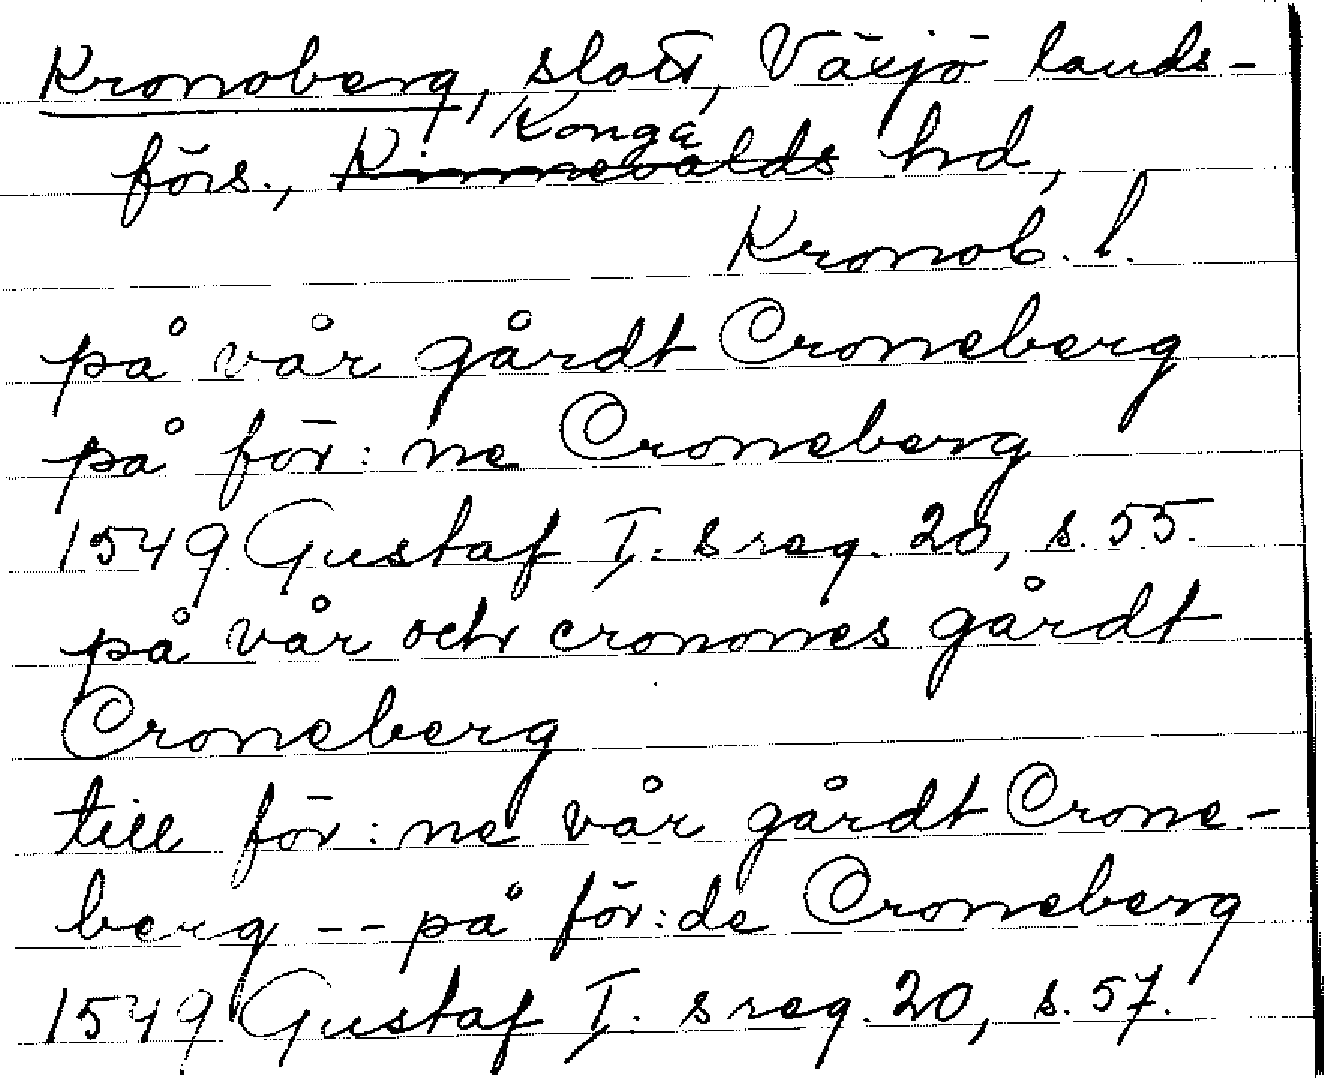 Kronoberg, slott, Växjö lands-
Konga
förs., Kinnevalds hd,
Kronob. l.
på vår gårdt Croneberg
på för: ne Croneberg
1549 Gustaf I:s reg. 20, s. 55.
på vår och cronones gårdt
Croneberg
till för: ne vår gårdt Crone-
berg -- på för: de Croneberg
1549 Gustaf I:s reg. 20, s. 57.